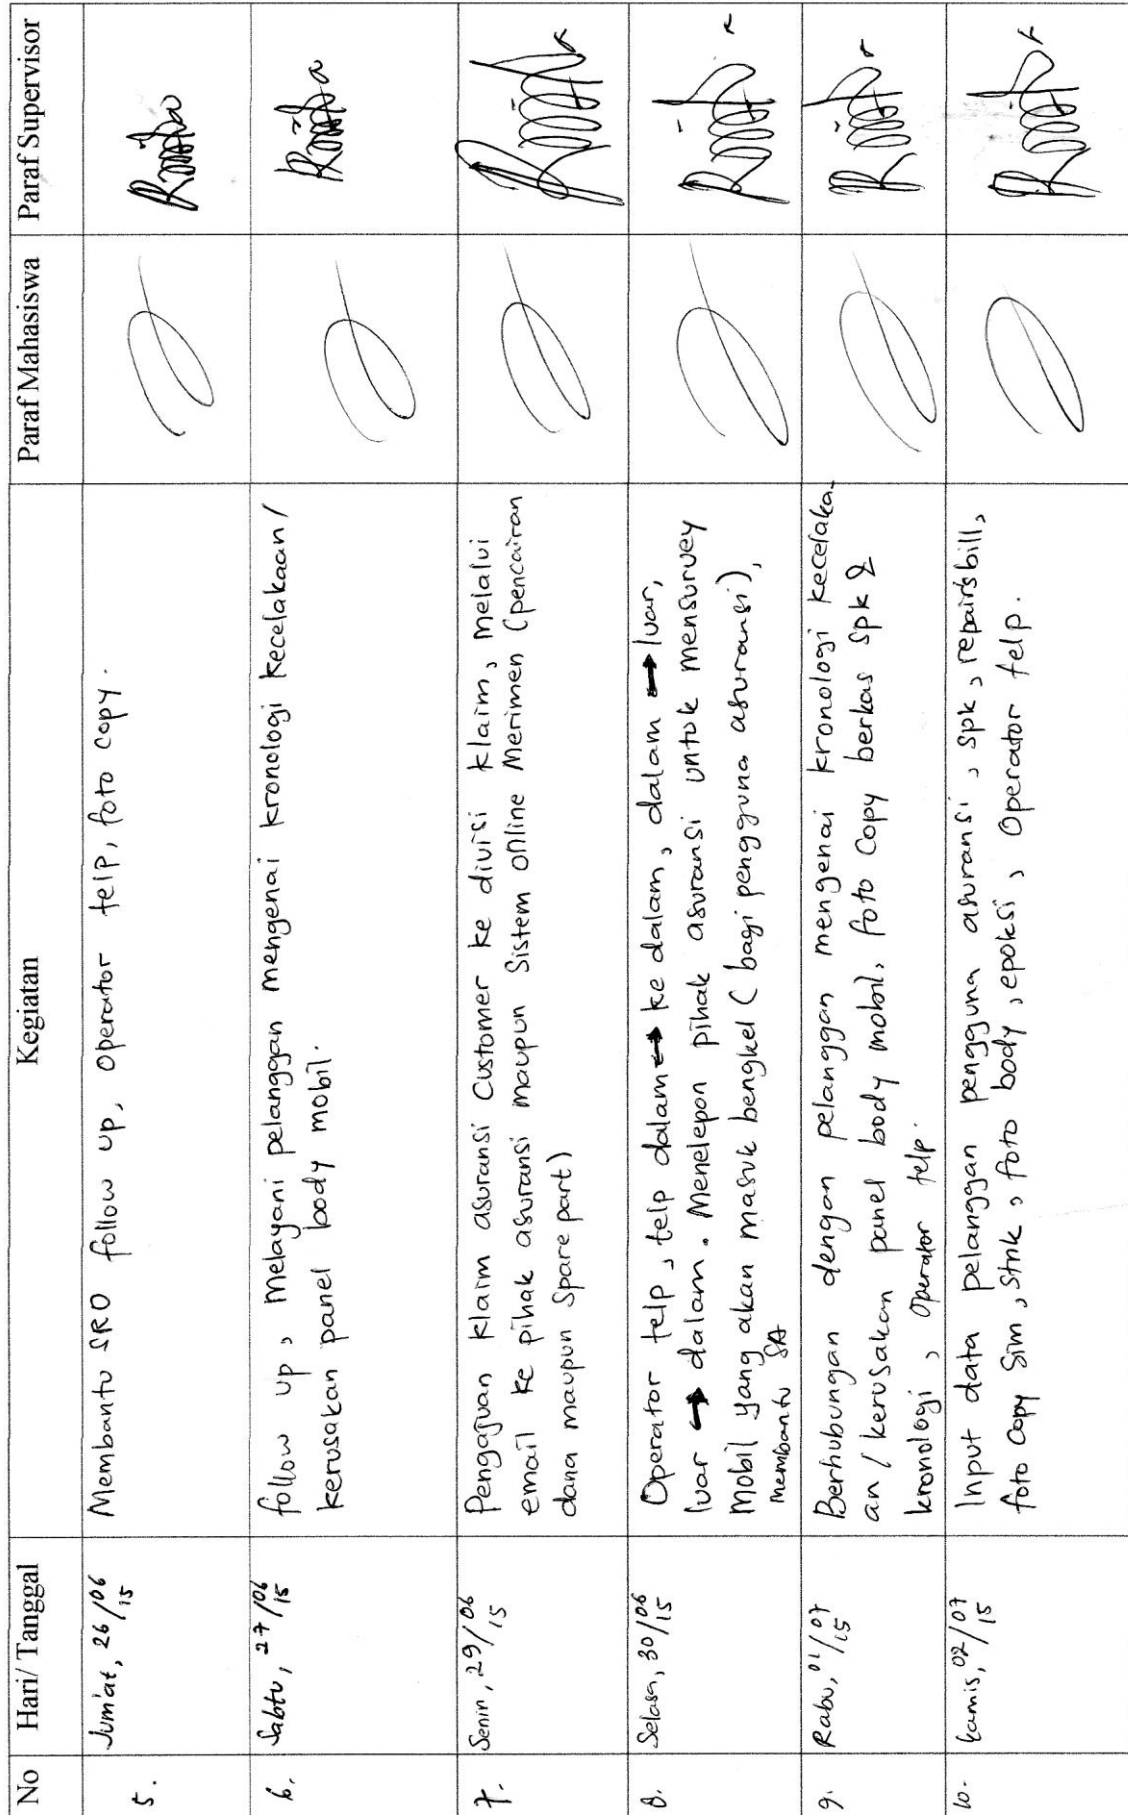 No Hari/ Tanggal Kegiatan Paraf Mahasiswa Paraf Supervisor
5. Jum'at, 26/06 15
Membantu SRO follow up, operator telp, foto copy.
6. Sabtu, 27/06 15
follow up, melayani pelanggan mengenai kronologi kecelakaan/
kerusakan panel body mobil.
7. Senin, 29/06 15
Pengajuan klaim asuransi customer ke divisi klaim, melalui
email ke pihak asuransi maupun sistem online Merimen (pencairan
dana maupun spare part)
8. Selasa, 30/06 15
Operator telp, telp dalam → ke dalam, dalam → luar,
luar → dalam. Menelepon pihak asuransi untuk mensurvey
mobil yang akan masuk bengkel (bagi pengguna asuransi),
membantu SA
9. Rabu, 01/07 15
Berhubungan dengan pelanggan mengenai kronologi kecelaka-
an / kerusakan panel body mobil, foto copy berkas spk &
kronologi, operator telp.
10. kamis, 02/07 15
Input data pelanggan pengguna asuransi, spk, repairsbill,
foto copy sim, stnk, foto body, epoksi, operator telp.